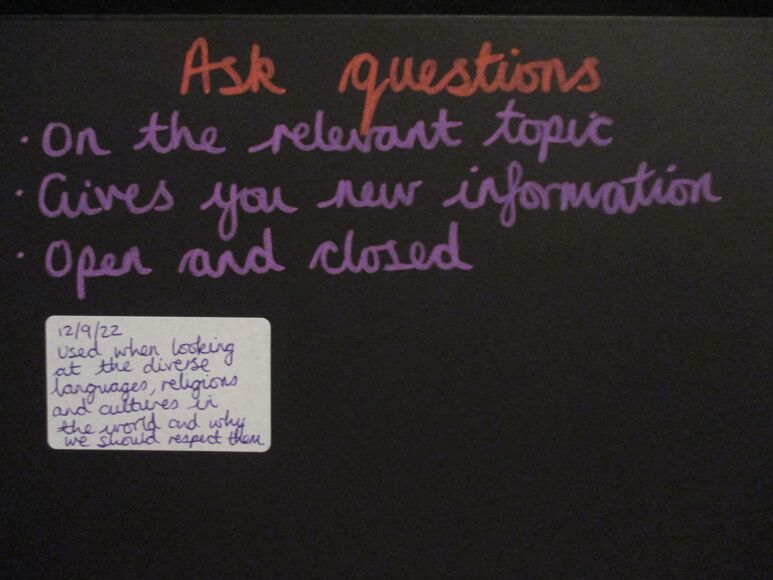 Ask questions
· On the relevant topic
· Gives you new information
· Open and closed
12/9/22
Used when looking
at the diverse
languages, religions
and cultures in
the world and why
we should respect them.